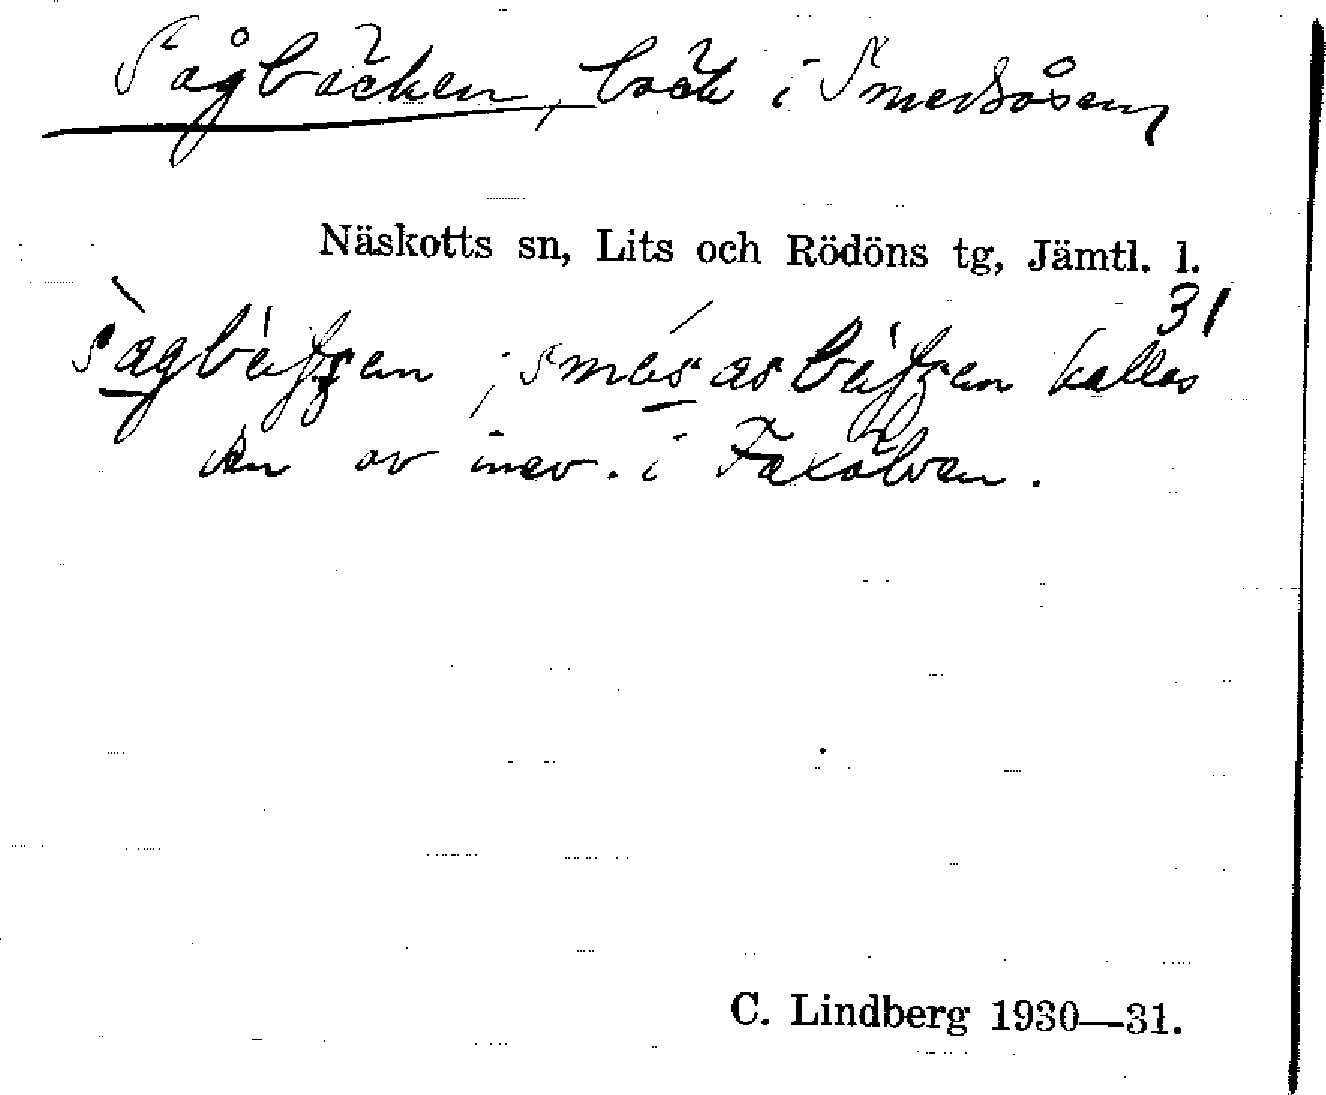 Sågbäcken, bäck i Smedsåsen,
Näskotts sn, Lits och Rödöns tg, Jämtl. l.
31
kallas
den av inev. i Faxälven.
C. Lindberg 1930—31.